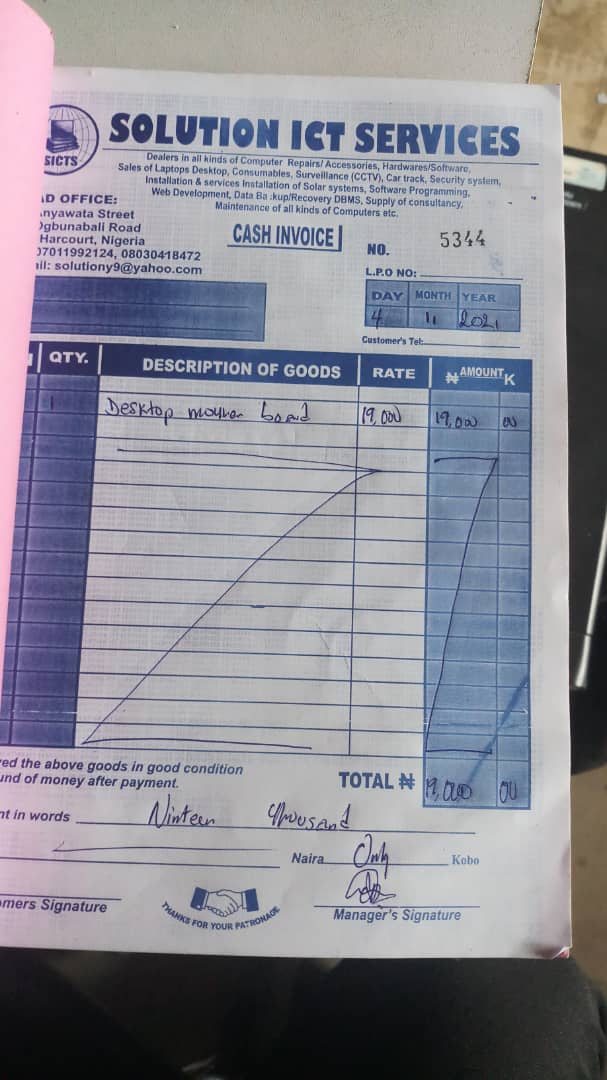 SICTS
SOLUTION ICT SERVICES
Dealers in all kinds of Computer Repairs/ Accessories, Hardwares/Software,
Sales of Laptops Desktop, Consumables, Surveillance (CCTV), Car track, Security system,
Installation & services Installation of Solar systems, Software Programming,
Web Development, Data Ba kup/Recovery DBMS, Supply of consultancy,
Maintenance of all kinds of Computers etc.
AD OFFICE:
nyawata Street
Ogbunabali Road
Harcourt, Nigeria
07011992124, 08030418472
ail: solutiony9@yahoo.com
CASH INVOICE
NO. 5344
L.P.O NO:
DAY MONTH YEAR
4 11 2021
Customer's Tel:
QTY. DESCRIPTION OF GOODS RATE ₦ AMOUNT K
1 Desktop mother board 19,000 19,000 00
ved the above goods in good condition
und of money after payment.
TOTAL ₦ 19,000 00
nt in words Ninteen thousand
Naira Only Kobo
omers Signature
THANKS FOR YOUR PATRONAGE
Manager's Signature